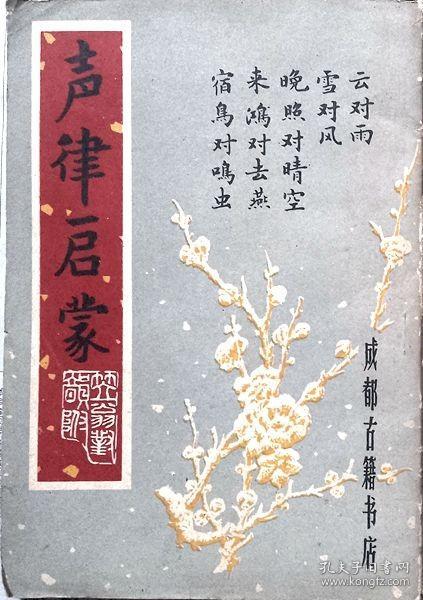 声律启蒙
笠翁對
韻附
云对雨
雪对风
晚照对晴空
来鸿对去燕
宿鸟对鸣虫
成都古籍书店
孔夫子旧书网
www.kongfz.com